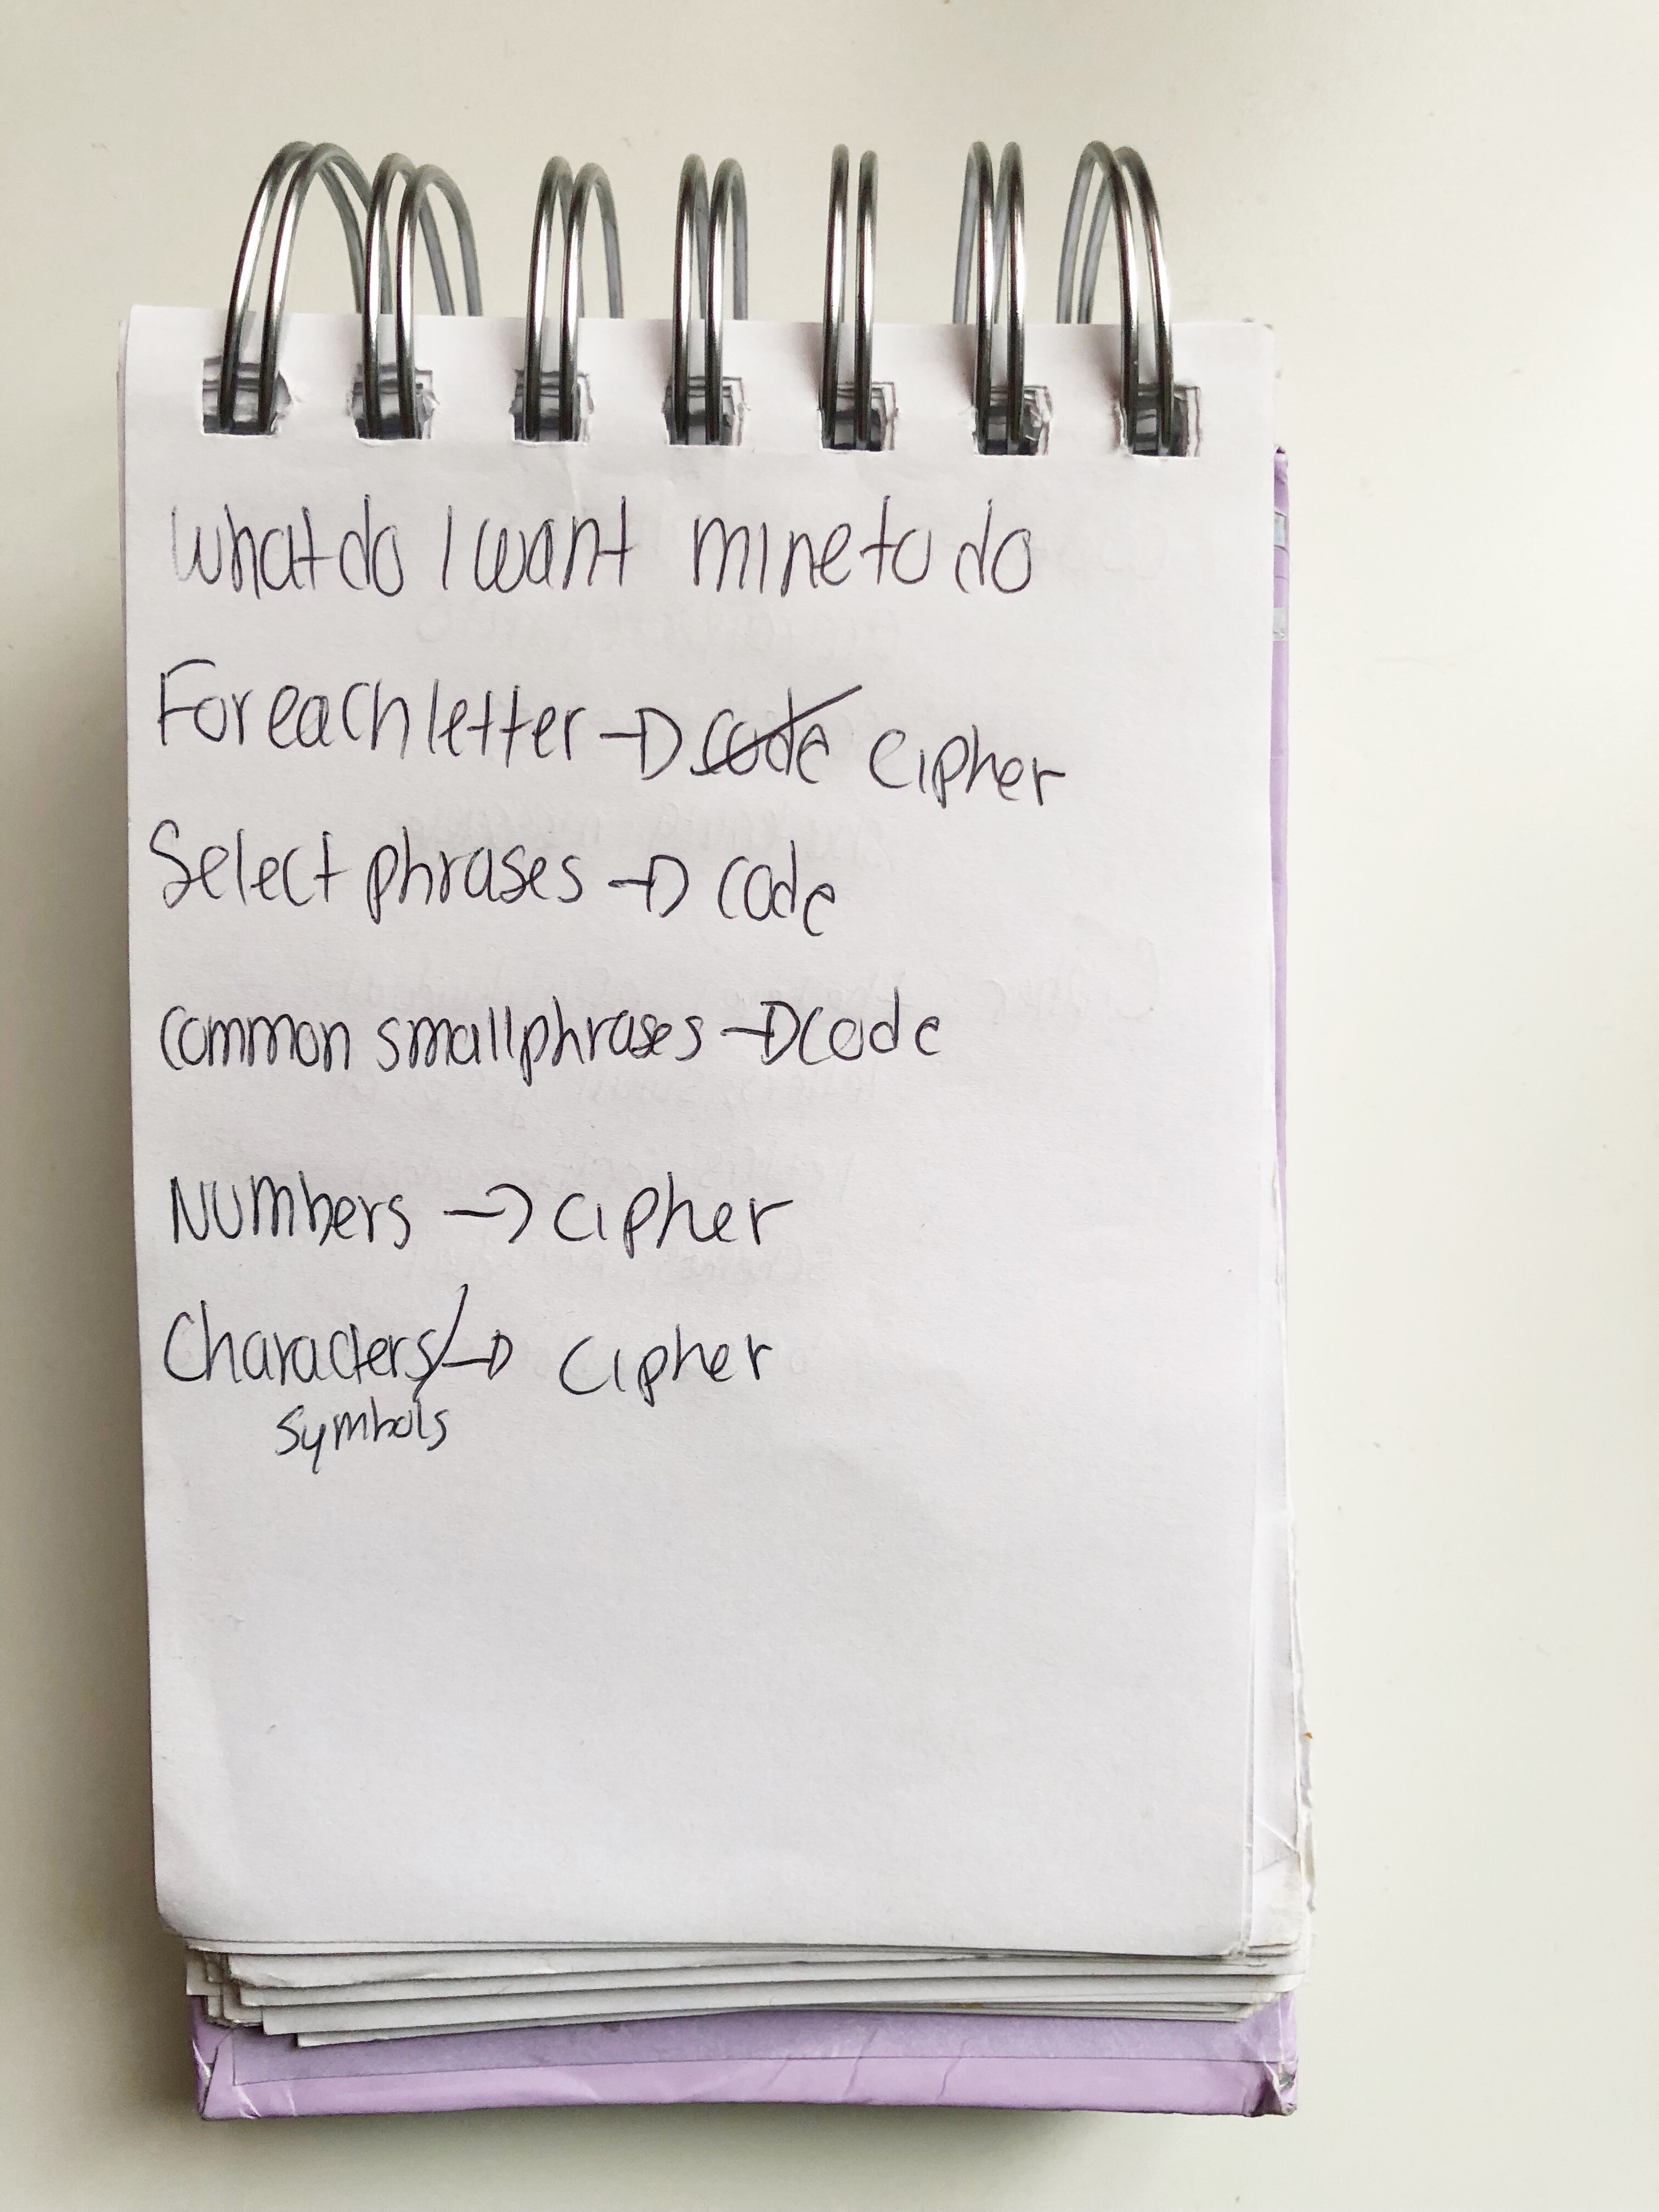 What do I want mine to do
For each letter → code cipher
Select phrases → code
common small phrases → code
Numbers → cipher
Characters/ → cipher
symbols